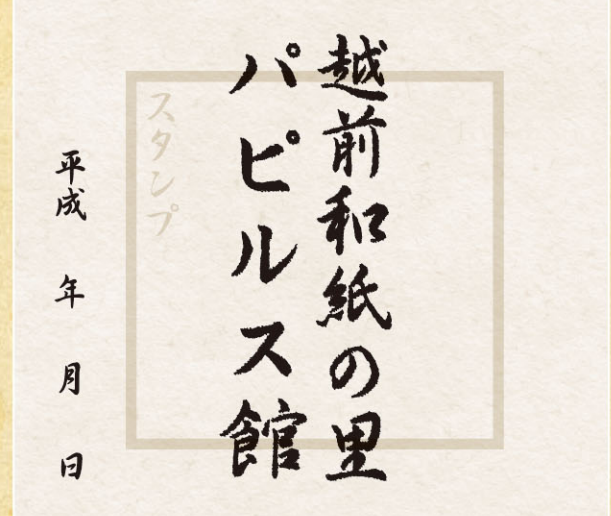 越前和紙の里
パピルス館
スタンプ
平成 年 月 日